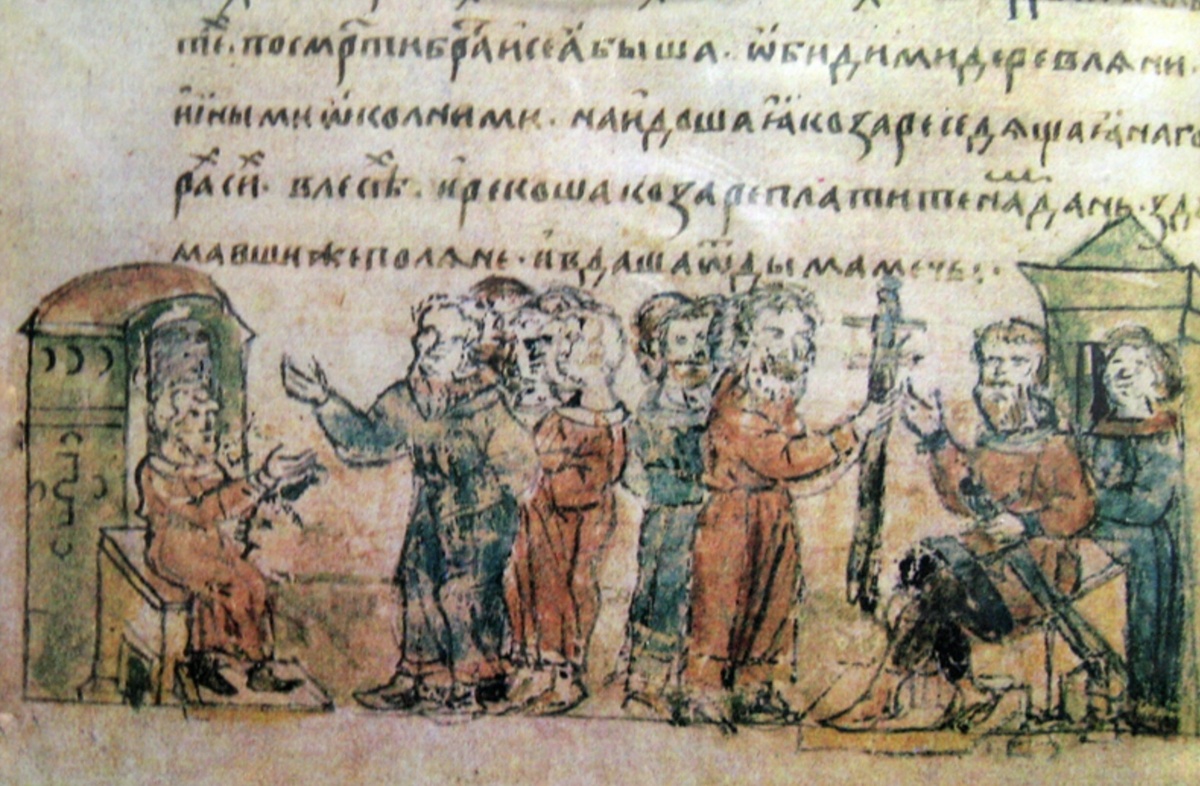 тѣ. по смр҃ти бра҃і сеꙗ҆ быша. ѡ҆бидими деревлѧни.
и҆ инѣми ѡ҆колними. наидоша ꙗ҆ козаре седѧщаꙗ҆ на го
ра сиⷯ. в лесѣⷯ. и҆ рекоша козаре платите наⷨ дань. зд
мавши же полѧне. и҆ вдаша ѿ дыма мечь:.